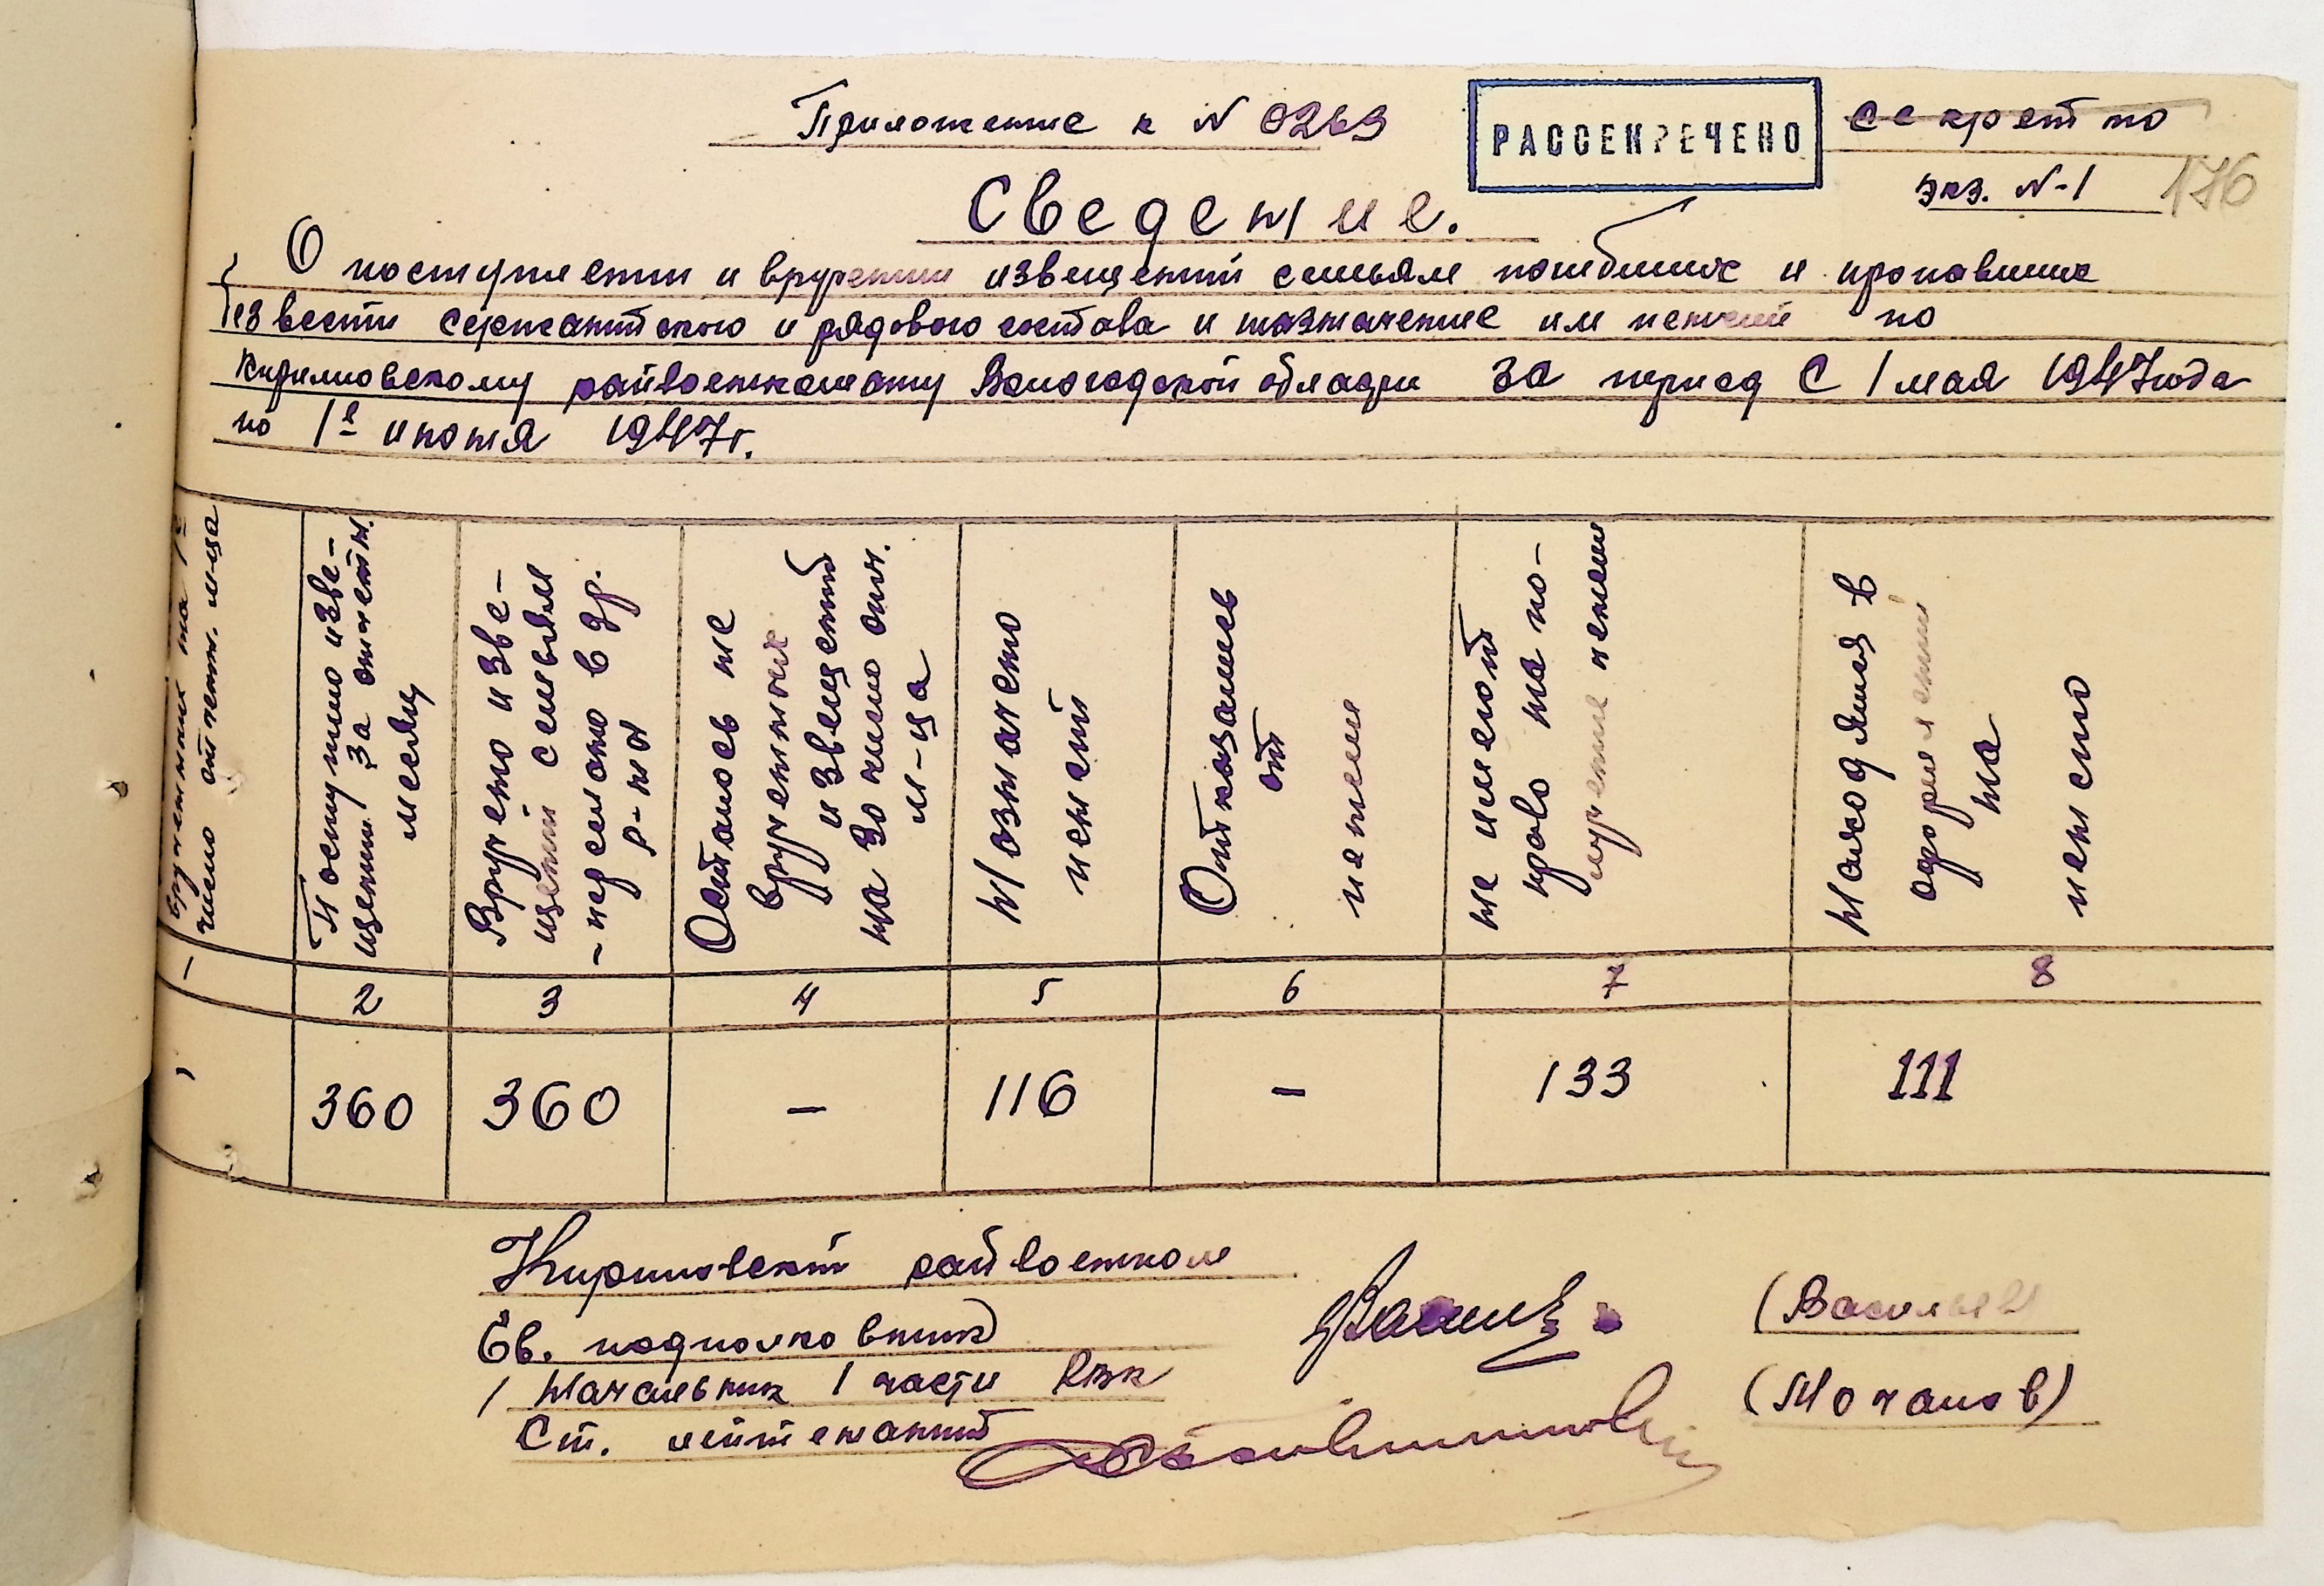 Приложение к N 0269
РАССЕКРЕЧЕНО
Секретно
экз. N-1
176
Сведение.
О поступлении и вручении извещений семьям погибших и пропавших
без вести сержантского и рядового состава и назначение им пенсий по
Кирилловскому райвоенкомату Вологодской области за период с 1 мая 1947 года
по 1е июня 1947г.
врученных на 1е
число отчетн. м-ца
Поступило изве-
щений за отчетн.
месяц
Вручено изве-
щений семьям
-переслано в др.
р-ны
Осталось не
врученных
извещений
на 30 число отч.
м-ца
Назначено
пенсий
Отказались
от
пенсии
не имеют
право на по-
лучение пенсии
Находятся в
оформлении
на
пенсию
1 2 3 4 5 6 7 8
360 360 — 116 — 133 111
Кирилловский райвоенком
Гв. подполковник
(Васильев
/ Начальник 1 части РВК
Ст. лейтенант
(Мочалов)